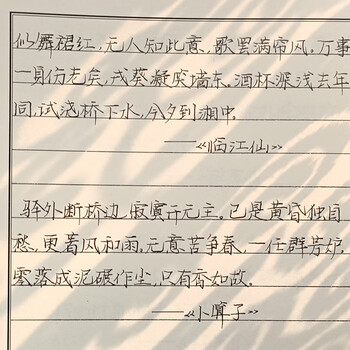 似舞裙红,无人知此意,歌罢满帘风。万事
一身伤老矣,戎葵凝笑墙东。酒杯深浅去年
同,试浇桥下水,今夕到湘中。
——《临江仙》
驿外断桥边,寂寞开无主。已是黄昏独自
愁,更著风和雨。无意苦争春,一任群芳妒。
零落成泥碾作尘,只有香如故。
——《卜算子》